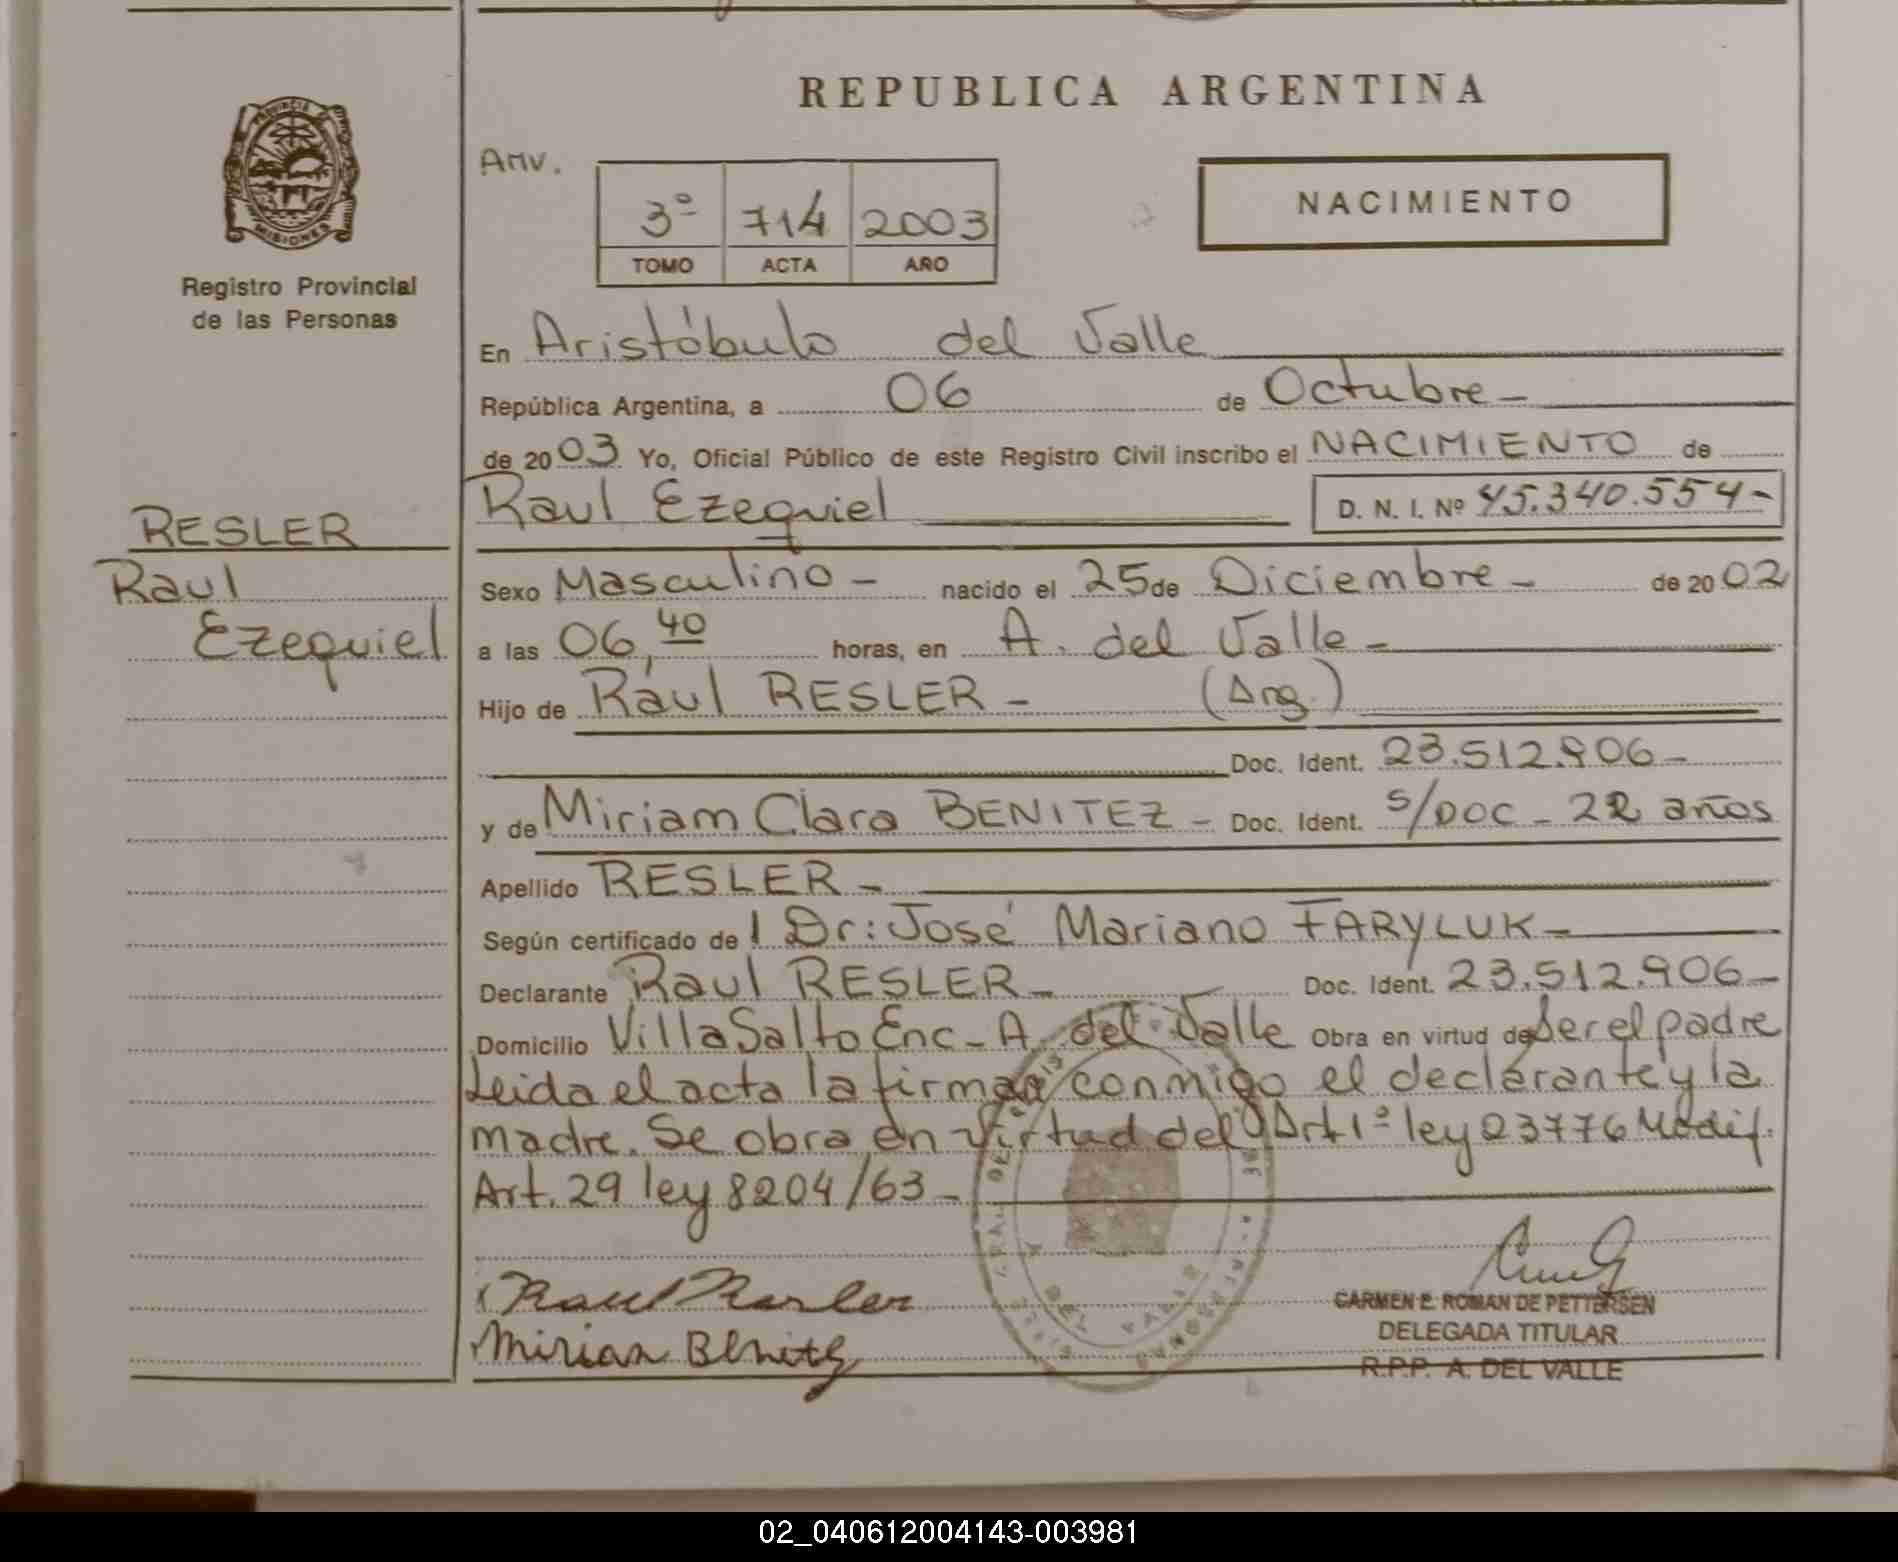 REPUBLICA ARGENTINA
PROVINCIA DE
MISIONES
Registro Provincial
de las Personas
Amv.
3º 714 2003
TOMO ACTA AÑO
NACIMIENTO
En Aristóbulo del Valle
República Argentina, a 06 de Octubre -
de 2003 Yo, Oficial Público de este Registro Civil inscribo el NACIMIENTO de
Raul Ezequiel D. N. I. Nº 45.340.554-
RESLER
Raul
Ezequiel
Sexo Masculino - nacido el 25 de Diciembre - de 20 02
a las 06,40 horas, en A. del Valle -
Hijo de Raul RESLER - (Arg.)
Doc. Ident. 23.512.906-
y de Miriam Clara BENITEZ - Doc. Ident. s/DOC - 22 años
Apellido RESLER -
Según certificado de l Dr: José Mariano FARYLUK -
Declarante Raul RESLER - Doc. Ident. 23.512.906-
Domicilio Villa Salto Enc - A. del Valle Obra en virtud de Ser el padre
Leida el acta la firman conmigo el declarante y la
madre. Se obra en virtud del Art 1º ley 23776 Modif.
Art. 29 ley 8204/63 -
Raul Resler
Mirian Benitez
CARMEN E. ROMAN DE PETTERSEN
DELEGADA TITULAR
R.P.P. A. DEL VALLE
02_040612004143-003981